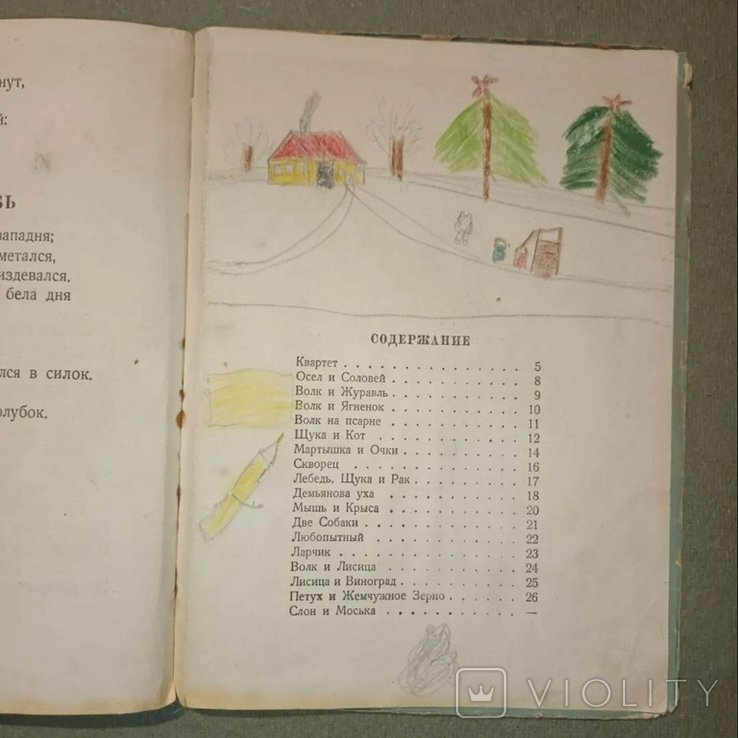 нут,
й:
Ь
западня;
метался,
издевался.
бела дня
лся в силок.
олубок.
СОДЕРЖАНИЕ
Квартет . . . . . . . . . . . . . . . 5
Осел и Соловей . . . . . . . . . . . . 8
Волк и Журавль . . . . . . . . . . . . 9
Волк и Ягненок . . . . . . . . . . . . 10
Волк на псарне . . . . . . . . . . . . 11
Щука и Кот . . . . . . . . . . . . . 12
Мартышка и Очки . . . . . . . . . . . 14
Скворец . . . . . . . . . . . . . . 16
Лебедь, Щука и Рак . . . . . . . . . . 17
Демьянова уха . . . . . . . . . . . . 18
Мышь и Крыса . . . . . . . . . . . . 20
Две Собаки . . . . . . . . . . . . . 21
Любопытный . . . . . . . . . . . . . 22
Ларчик . . . . . . . . . . . . . . . 23
Волк и Лисица . . . . . . . . . . . . 24
Лисица и Виноград . . . . . . . . . . 25
Петух и Жемчужное Зерно . . . . . . 26
Слон и Моська . . . . . . . . . . . . —
VIOLITY